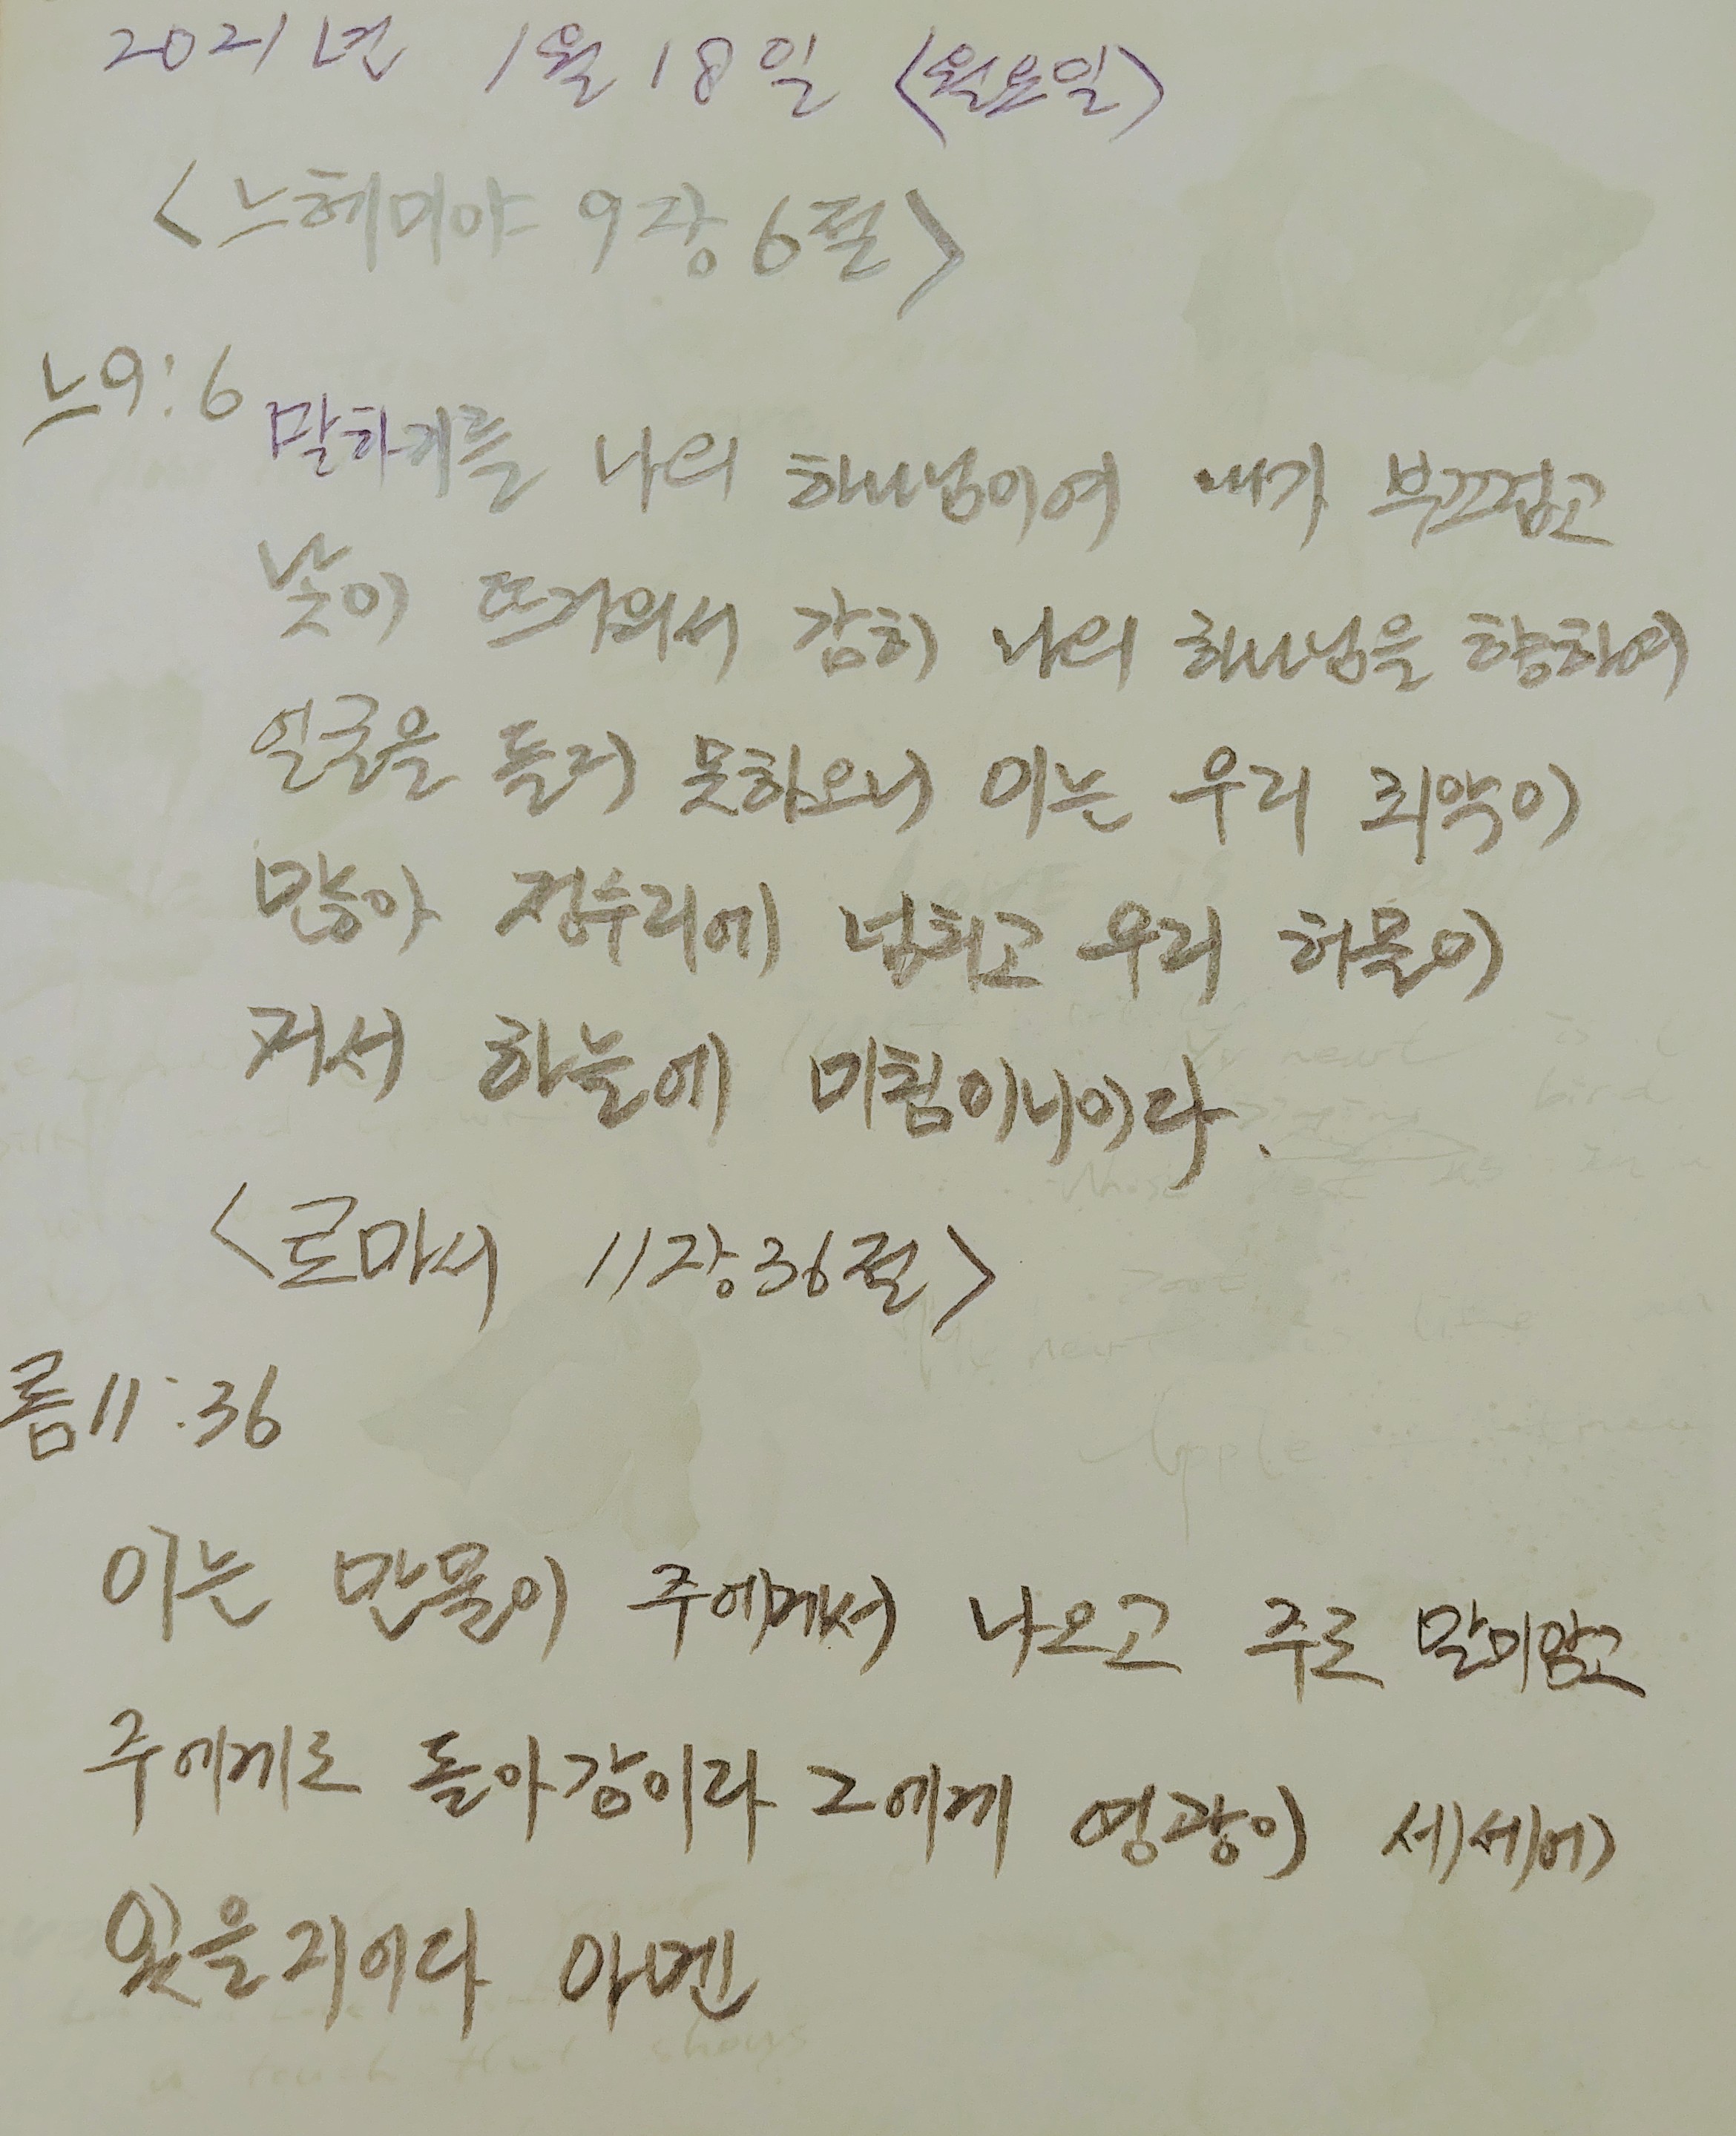 2021년 1월 18일 <월요일>
<느헤미야 9장 6절>
느9:6
말하기를 나의 하나님이여 내가 부끄럽고
낯이 뜨거워서 감히 나의 하나님을 향하여
얼굴을 들지 못하오니 이는 우리 죄악이
많아 정수리에 넘치고 우리 허물이
커서 하늘에 미침이니이다.
<로마서 11장 36절>
롬11:36
이는 만물이 주에게서 나오고 주로 말미암고
주에게로 돌아감이라 그에게 영광이 세세에
있을지어다 아멘